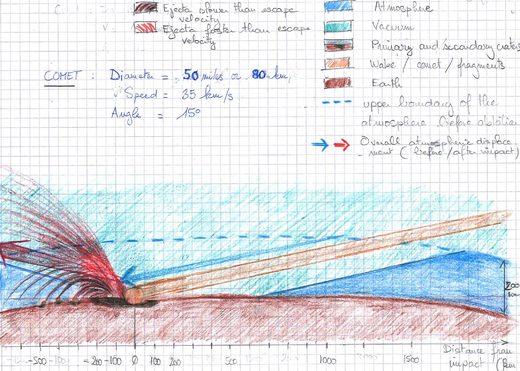 Ejecta slower than escape
velocity
Ejecta faster than escape
velocity
Atmosphere
Vacuum
Primary and secondary craters
Wake / comet / fragments
Earth
upper boundary of the
atmosphere before
Overall atmospheric displace
-ment (before/after impact)
COMET : Diameter = 50 miles or 80 km
Speed = 35 km/s
Angle = 15°
200
-500 -200 -100 0 100 200 500 1000 1500
Distance from
impact (km